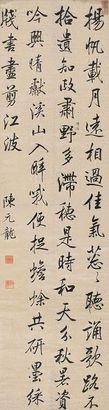 揚帆載月遠相過佳氣葱々聽誦歌路不
拾遺知政肅野多滯穗是時和天分秋暑資
吟興晴獻溪山入醉哦便捉蟾蜍共研墨綵
牋書盡剪江波
陳元龍